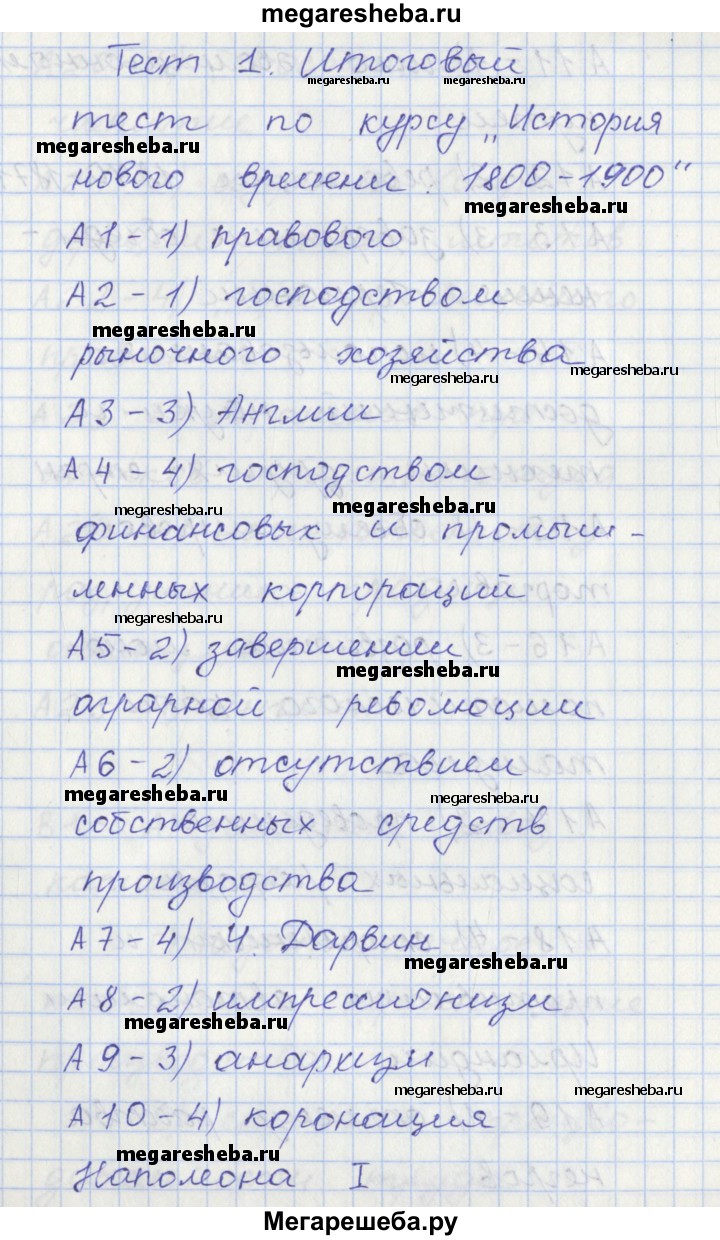 megaresheba.ru
Тест 1. Итоговый
megaresheba.ru megaresheba.ru
тест по курсу „История
megaresheba.ru
нового времени. 1800-1900"
megaresheba.ru
А1-1) правового
А2-1) господством
megaresheba.ru
рыночного хозяйства
megaresheba.ru megaresheba.ru
А3-3) Англии
А4-4) господством
megaresheba.ru megaresheba.ru
финансовых и промыш-
ленных корпораций
megaresheba.ru
А5-2) завершении
megaresheba.ru
аграрной революции
А6-2) отсутствием
megaresheba.ru megaresheba.ru
собственных средств
производства
А7-4) Ч. Дарвин
megaresheba.ru
А8-2) импрессионизм
megaresheba.ru
А9-3) анархизм
megaresheba.ru megaresheba.ru
А10-4) коронация
megaresheba.ru
Наполеона I
Мегарешеба.ру